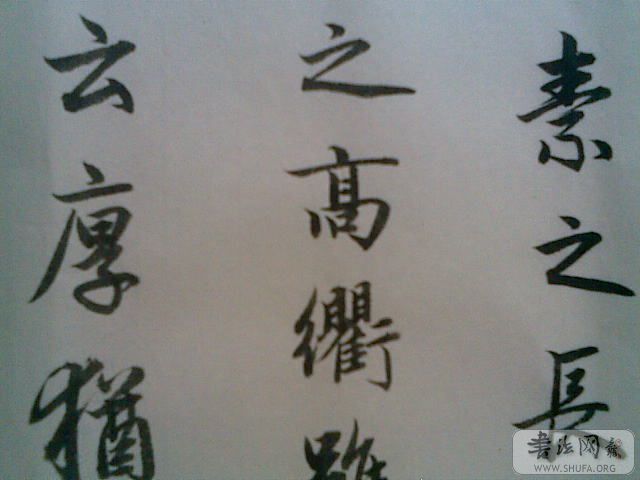 素之長
之高衢雖
云厚猶
書法网报
WWW.SHUFA.ORG